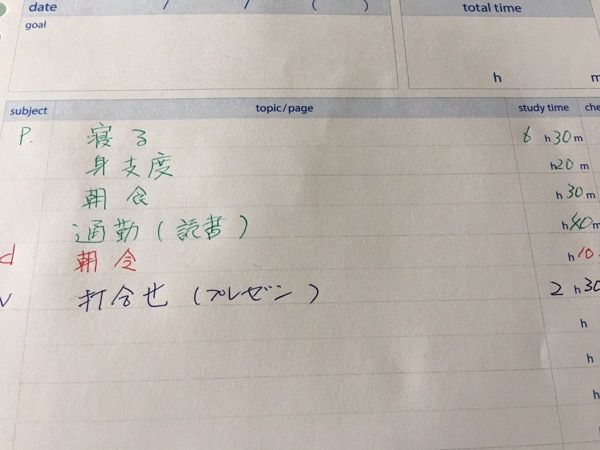 date / / ( ) total time
goal
h m
subject topic/page study time che
P. 寝る 6 h 30 m
身支度 h 20 m
朝食 h 30 m
通勤(読書) h 40 m
d 朝令 h 10
打合せ(プレゼン) 2 h 30
h
h
h
h